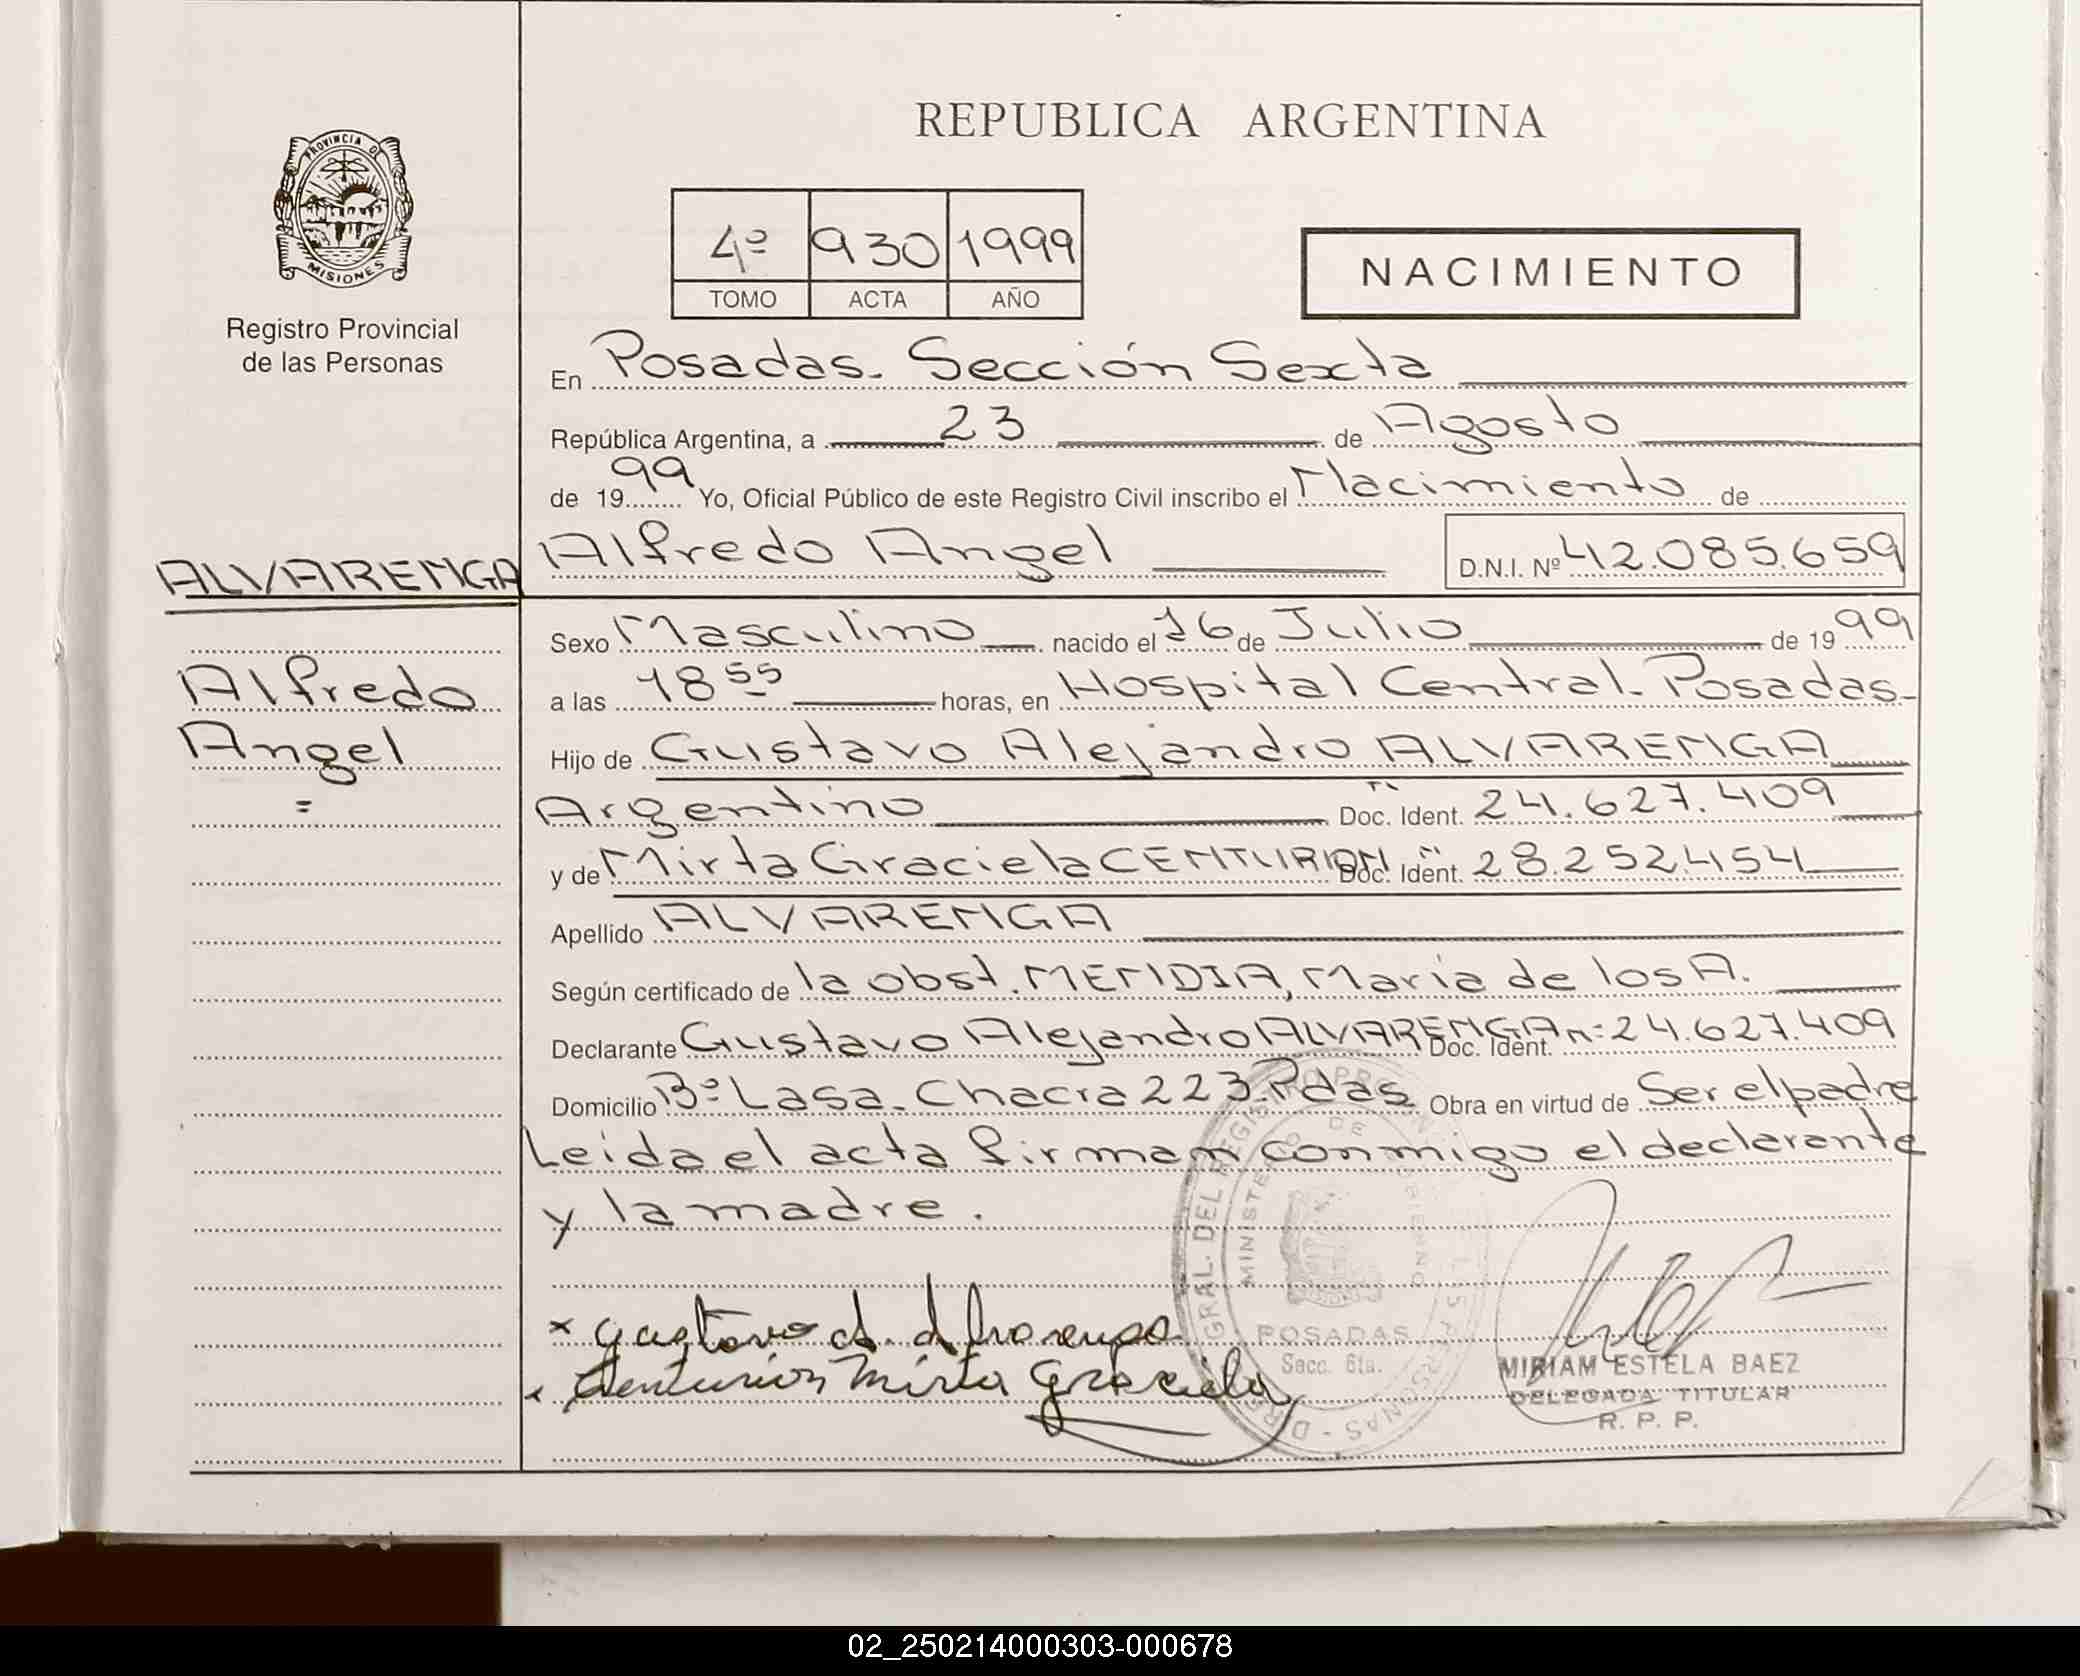 REPUBLICA ARGENTINA
PROVINCIA DE
MISIONES
Registro Provincial
de las Personas
4º 930 1999
TOMO ACTA AÑO
NACIMIENTO
En Posadas. Sección Sexta
República Argentina, a 23 de Agosto
de 1999 Yo, Oficial Público de este Registro Civil inscribo el Nacimiento de
ALVARENGA
Alfredo Angel D.N.I. Nº 42.085.659
Alfredo
Angel
=
Sexo Masculino nacido el 16 de Julio de 1999
a las 18 55 horas, en Hospital Central. Posadas-
Hijo de Gustavo Alejandro ALVARENGA
Argentino Doc. Ident. 24.627.409
y de Mirta Graciela CENTURION Doc. Ident. 28.252.454
Apellido ALVARENGA
Según certificado de la obst. MENDIA, María de los A.
Declarante Gustavo Alejandro ALVARENGA Doc. Ident. n: 24.627.409
Domicilio Bº Lasa. Chacra 223. Pdas. Obra en virtud de Ser el padre
Leída el acta firman conmigo el declarante
y la madre.
x Gustavo A. Alvarenga
x Centurion Mirta Graciela
GRAL. DEL REGIS
MINISTERIO DE GOBIERNO
POSADAS
Secc. 6ta.
MIRIAM ESTELA BAEZ
DELEGADA TITULAR
R. P. P.
02_250214000303-000678